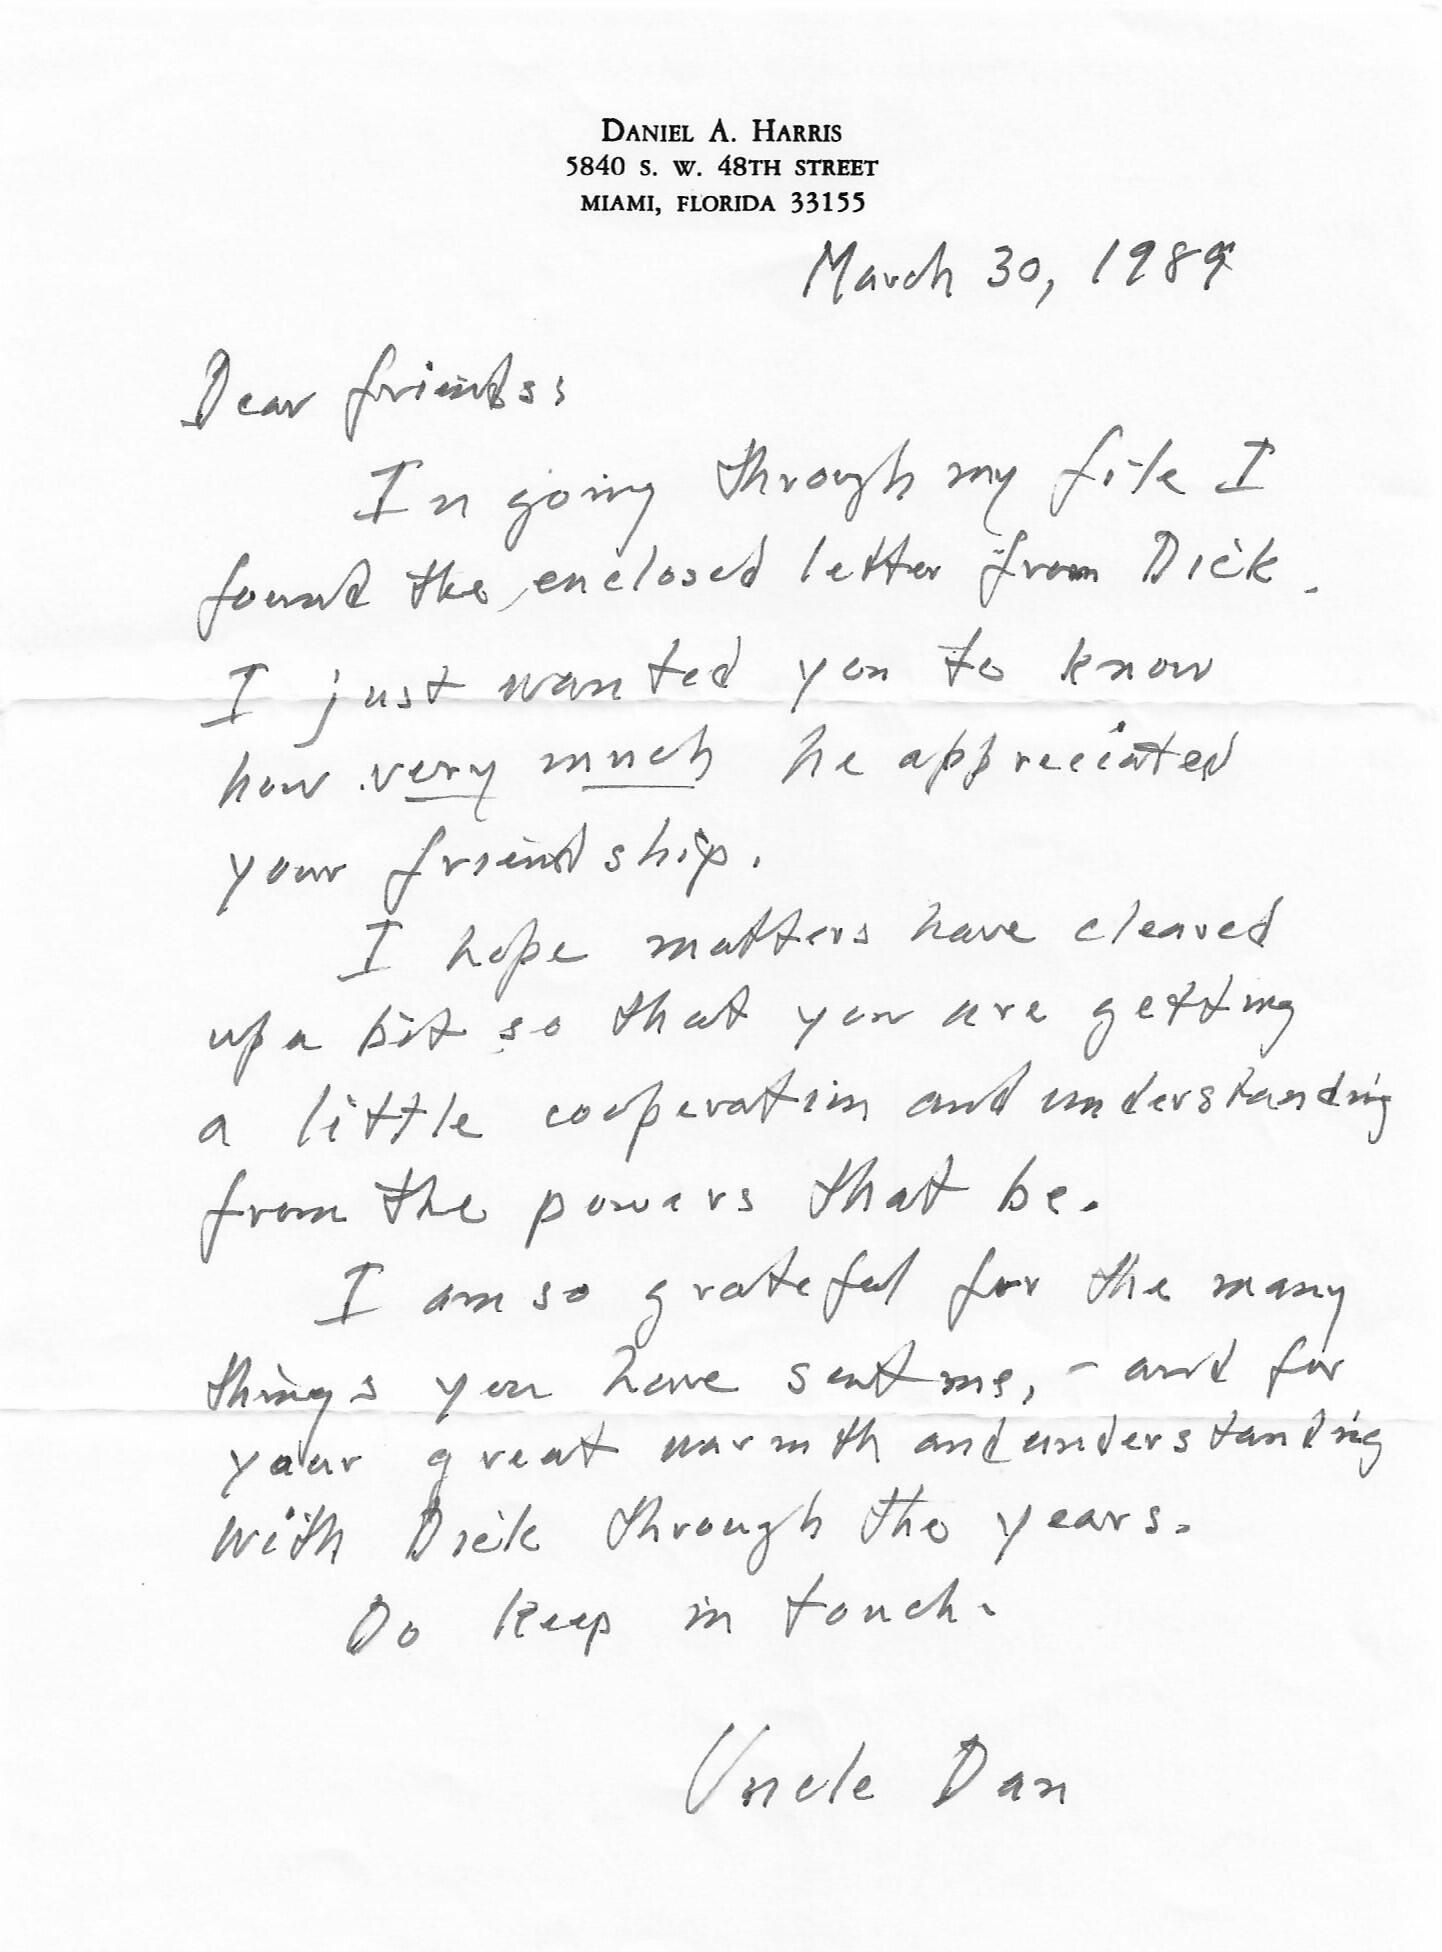 DANIEL A. HARRIS
5840 S. W. 48TH STREET
MIAMI, FLORIDA 33155
March 30, 1989
Dear friends:
In going through my file I
found the enclosed letter from Dick.
I just wanted you to know
how very much he appreciated
your friendship.
I hope matters have cleared
up a bit so that you are getting
a little cooperation and understanding
from the powers that be.
I am so grateful for the many
things you have sent me, - and for
your great warmth and understanding
with Dick through the years.
Do keep in touch.
Uncle Dan